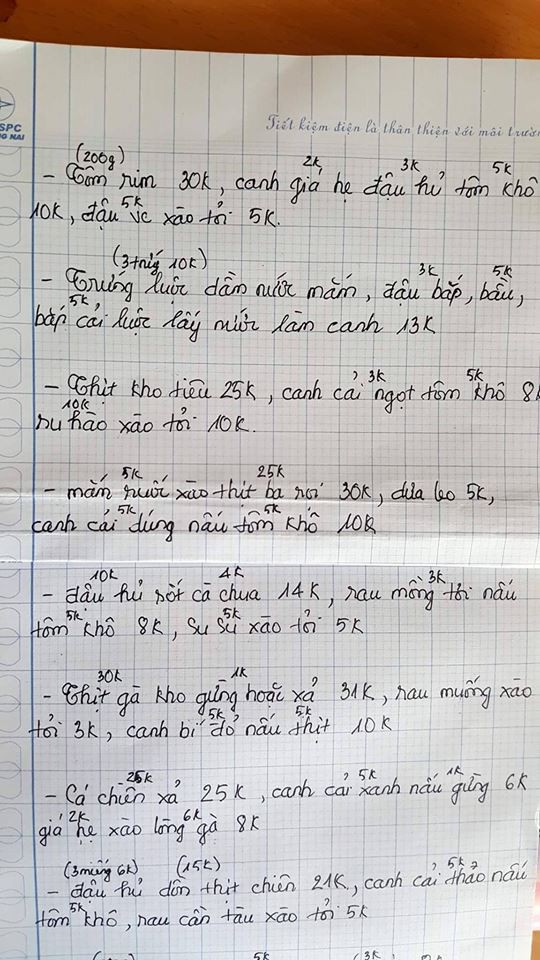 SPC
NG NAI
Tiết kiệm điện là thân thiện với môi trườn
(200g) 2k 3k 5k
- Tôm rim 30K, canh giá hẹ đậu hủ tôm khô
5k
10K, đậu ve xào tỏi 5K.
(3 trứng 10K) 3k 5k
- Trứng luộc dầm nước mắm, đậu bắp, bầu,
5k
bắp cải luộc lấy nước làm canh 13K
3k 5k
- Thịt kho tiêu 25K, canh cải ngọt tôm khô 8K
10k
su hào xào tỏi 10K.
5k 25k
- mắm ruốc xào thịt ba rọi 30K, dưa leo 5K,
5k 5k
canh cải dúng nấu tôm khô 10K
10k 4k 3k
- đậu hủ sốt cà chua 14K, rau mồng tơi nấu
5k 5k
tôm khô 8K, su su xào tỏi 5K
30k 1k
- Thịt gà kho gừng hoặc xả 31K, rau muống xào
5k 5k
tỏi 3K, canh bí đỏ nấu thịt 10K
25k 5k 1k
- Cá chiên xả 25K, canh cải xanh nấu gừng 6K
2k 6k
giá hẹ xào lòng gà 8K
(3 miếng 6k) (15k) 5k
- đậu hủ dồn thịt chiên 21K, canh cải thảo nấu
5k
tôm khô, rau cần tàu xào tỏi 5K
5k (3k